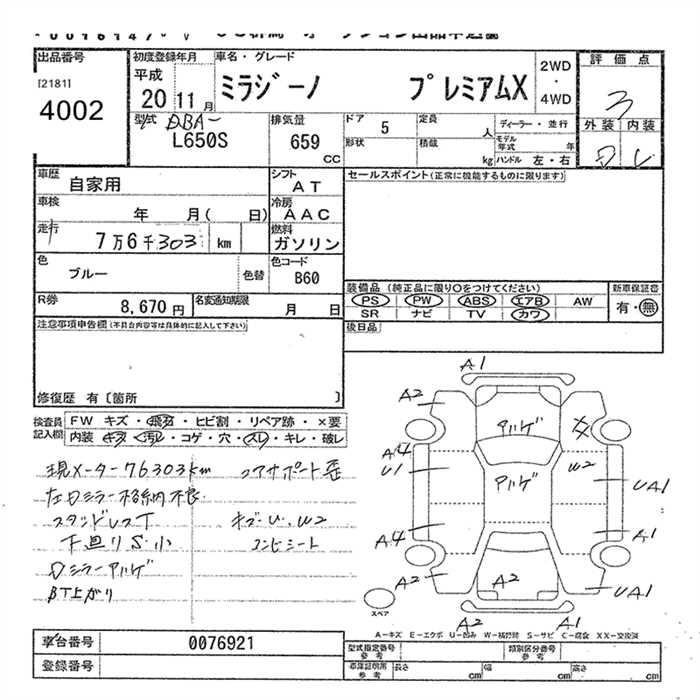 出品番号
[2181]
4002
初度登録年月
平成
20 11月
車名・グレード
ミラジーノ プレミアムX
2WD
・
4WD
評価点
3
外装 内装
D
型式 DBA-
L650S
排気量
659
CC
ドア 5
形状
定員
人
積載
kg
ディーラー・並行
モデル年式 年
ハンドル 左・右
車歴
自家用
シフト
AT
車検
年 月( 日)
冷房
AAC
走行
7万6千303 km
燃料
ガソリン
色
ブルー
色替
色コード
B60
R券
8,670円
名変通知期限
月 日
セールスポイント(正常に機能するものに限ります)
装備品 (純正品に限り○をつけてください)
PS PW ABS エアB AW
SR ナビ TV カワ
新車保証書
有・無
後日品
注意事項申告欄(不具合内容等は具体的に記入して下さい)
修復歴 有〔箇所 〕
検査員記入欄
FW キズ・飛石・ヒビ割・リペア跡・×要
内装 キズ・汚レ・コゲ・穴・スレ・キレ・破レ
現メーター76303km
左Dミラー格納不良
スタッドレスT
下廻りS・小
Dミラーアルゲ
BT上がり
コアサポート歪
キズ・U、W2
コンビシート
A1
A2
アルゲ
A4
U1
W2
アルゲ
UA1
A4
A1
A2
A2
UA1
A2
A1
スペア
A－キズ E－エクボ U－凹み W－補修跡 S－サビ C－腐食 XX－交換済
車台番号
0076921
登録番号
型式指定番号
参考
類別区分番号
参考
車庫証明用
参考
長さ cm
幅 cm
高さ cm